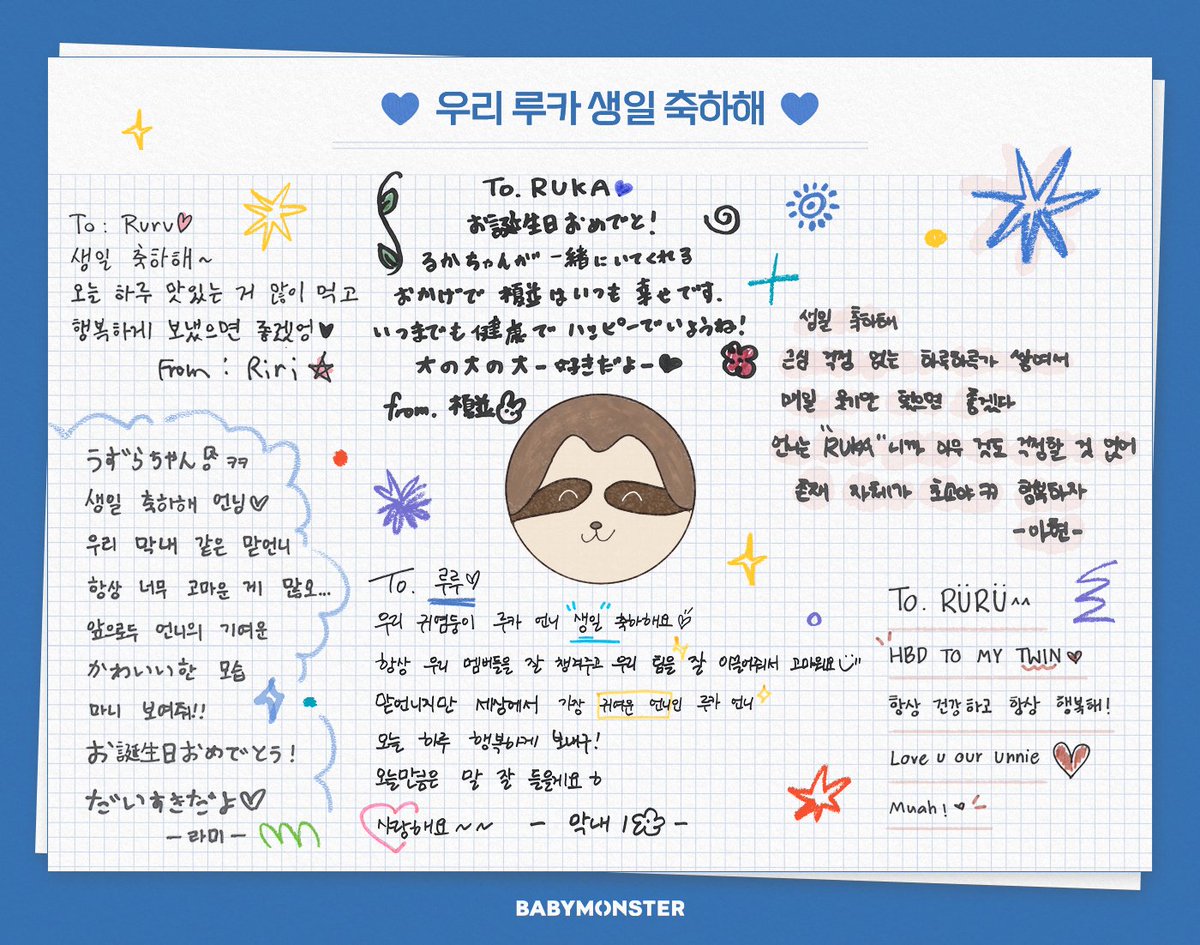 우리 루카 생일 축하해
To : Ruru
생일 축하해~
오늘 하루 맛있는 거 많이 먹고
행복하게 보냈으면 좋겠엉
From : Riri
To. RUKA
お誕生日おめでと!
るかちゃんが一緒にいてくれる
おかげで 榎並はいつも幸せです.
いつまでも健康でハッピーでいようね!
大の大の大ー好きだよー
from. 榎並
생일 축하해
근심 걱정 없는 하루하루가 쌓여서
매일 웃기만 했으면 좋겠다
언니는 "RUKA" 니까 아무 것도 걱정할 것 없어
존재 자체가 호소야ㅋㅋ 행복하자
-아현-
うずらちゃん ㅋㅋ
생일 축하해 언님
우리 막내 같은 맏언니
항상 너무 고마운 게 많오...
앞으로두 언니의 기여운
かわいい한 모습
마니 보여줘!!
お誕生日おめでとう!
だいすきだよ
-라미-
To. 루루
우리 귀염둥이 루카 언니 "생일" 축하해요
항상 우리 멤버들을 잘 챙겨주고 우리 팀을 잘 이끌어줘서 고마워요
맏언니지만 세상에서 가장 귀여운 언니인 루카 언니
오늘 하루 행복하게 보내구!
오늘만큼은 말 잘 들을게요 ㅎ
사랑해요~~ - 막내 -
To. RÜRÜ^^
HBD TO MY TWIN
항상 건강하고 항상 행복해!
Love u our unnie
Muah!
BABYMONSTER